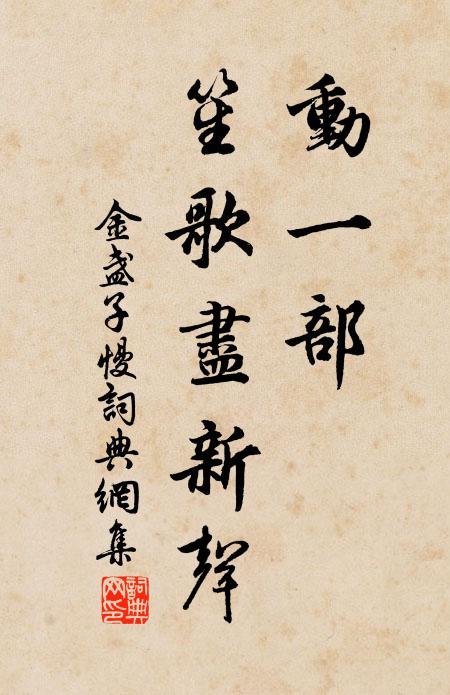 動一部
笙歌盡新聲
金盞子慢詞典網集
詞典网印